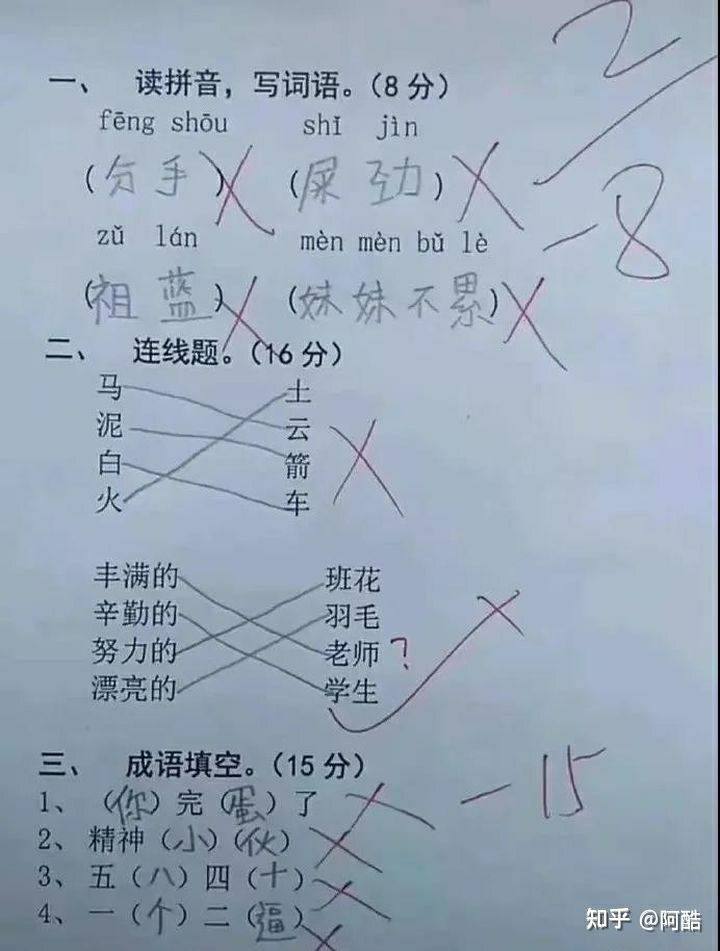 2
一、 读拼音，写词语。（8分）
fēng shōu shǐ jìn
（分手） （屎劲）
-8
zǔ lán mèn mèn bǔ lè
（祖蓝） （妹妹不累）
二、 连线题。（16分）
马 土
泥 云
白 箭
火 车
丰满的 班花
辛勤的 羽毛
努力的 老师？
漂亮的 学生
三、 成语填空。（15分）
-15
1、（你）完（蛋）了
2、精神（小）（伙）
3、五（八）四（十）
4、一（个）二（逼）
知乎 @阿酷